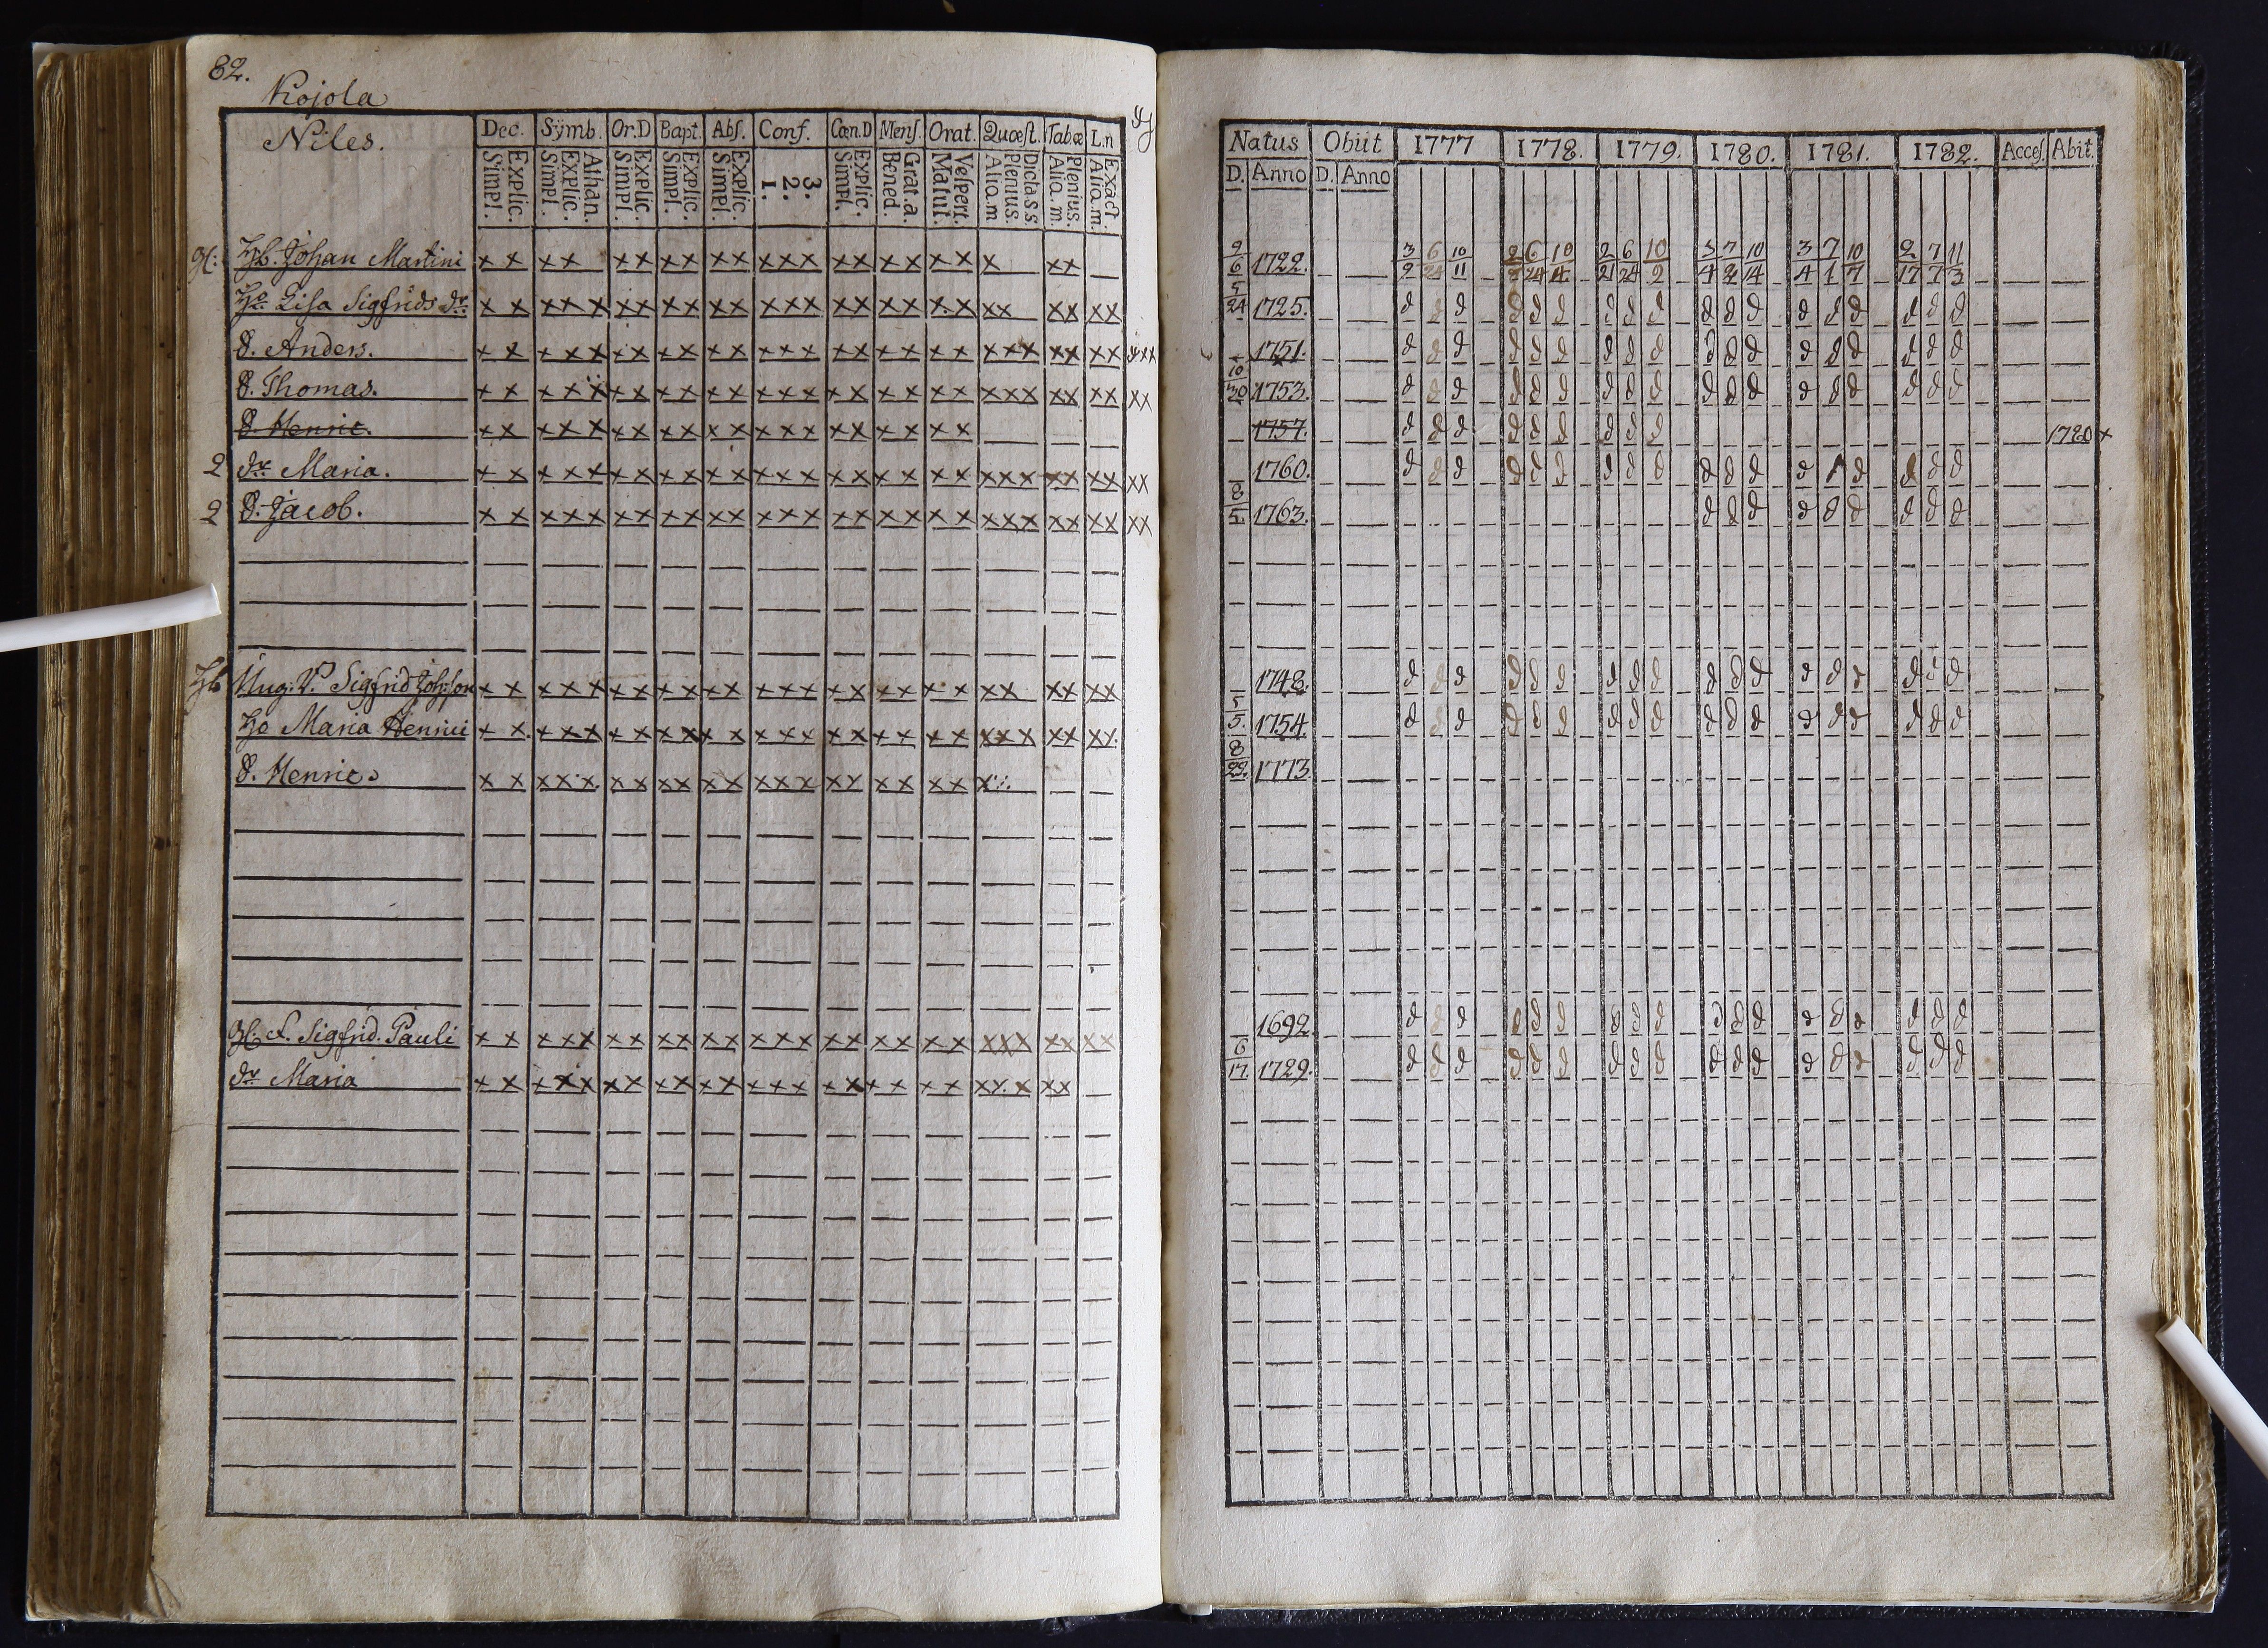 82.
Kojola
Niles.
Dec. Sÿmb. Or.D Bapt. Abſ. Conf. Cœn.D Menſ. Orat. Quœſt. Tabœ L.n
Explic. Simpl. Athan. Explic. Simpl. Explic. Simpl. Explic. Simpl. Explic. Simpl. 3. 2. 1. Explic. Simpl. Grat.a. Bened. Veſpert. Matut. Dictass. Plenius. Aliq.m Plenius. Aliq.m. Exact. Aliq.m.
Johan Martini x x x x x x x x x x x x x x x x x x x x x x x
Lisa Sigfrids dr x x x x x x x x x x x x x x x x x x x x x x x x x x
S. Anders. x x x x x x x x x x x x x x x x x x x x x x x x x x x x x x
S. Thomas. x x x x x x x x x x x x x x x x x x x x x x x x x x x x x
S. Henric. x x x x x x x x x x x x x x x x x x x x
2 dr Maria. x x x x x x x x x x x x x x x x x x x x x x x x x x x x x
2 S. Jacob. x x x x x x x x x x x x x x x x x x x x x x x x x x x x x
Sigfrid Joh:son x x x x x x x x x x x x x x x x x x x x x x x x x x
Maria Henrici x x x x x x x x x x x x x x x x x x x x x x x x x x x
S. Henric. x x x x x x x x x x x x x x x x x x x x x
Sigfrid. Pauli x x x x x x x x x x x x x x x x x x x x x x x x x x x
dr Maria x x x x x x x x x x x x x x x x x x x x x x x x x
Natus Obiit 1777 1778. 1779. 1780. 1781. 1782. Acceſ. Abit.
D. Anno D. Anno
9/6 1722. 3/9 6/24 10/11 6/24 10/4 2/21 6/24 10/2 3/4 7/2 10/14 3/4 7/1 10/7 2/17 7/7 11/3
5/24 1725. d d d d d d d d d d d d d d d d d d
1751. d d d d d d d d d d d d d d d d d d
10/20 1753. d d d d d d d d d d d d d d d d d d
1757. d d d d d d d d d 1780 x
1760. d d d d d d d d d d d d d d d d d
8/5 1763. d d d d d d d d d
1748. d d d d d d d d d d d d d d d d d d
5/5. 1754. d d d d d d d d d d d d d d d d d d
8/22. 1773
1692. d d d d d d d d d d d d d d d d d d
6/17 1729. d d d d d d d d d d d d d d d d d d